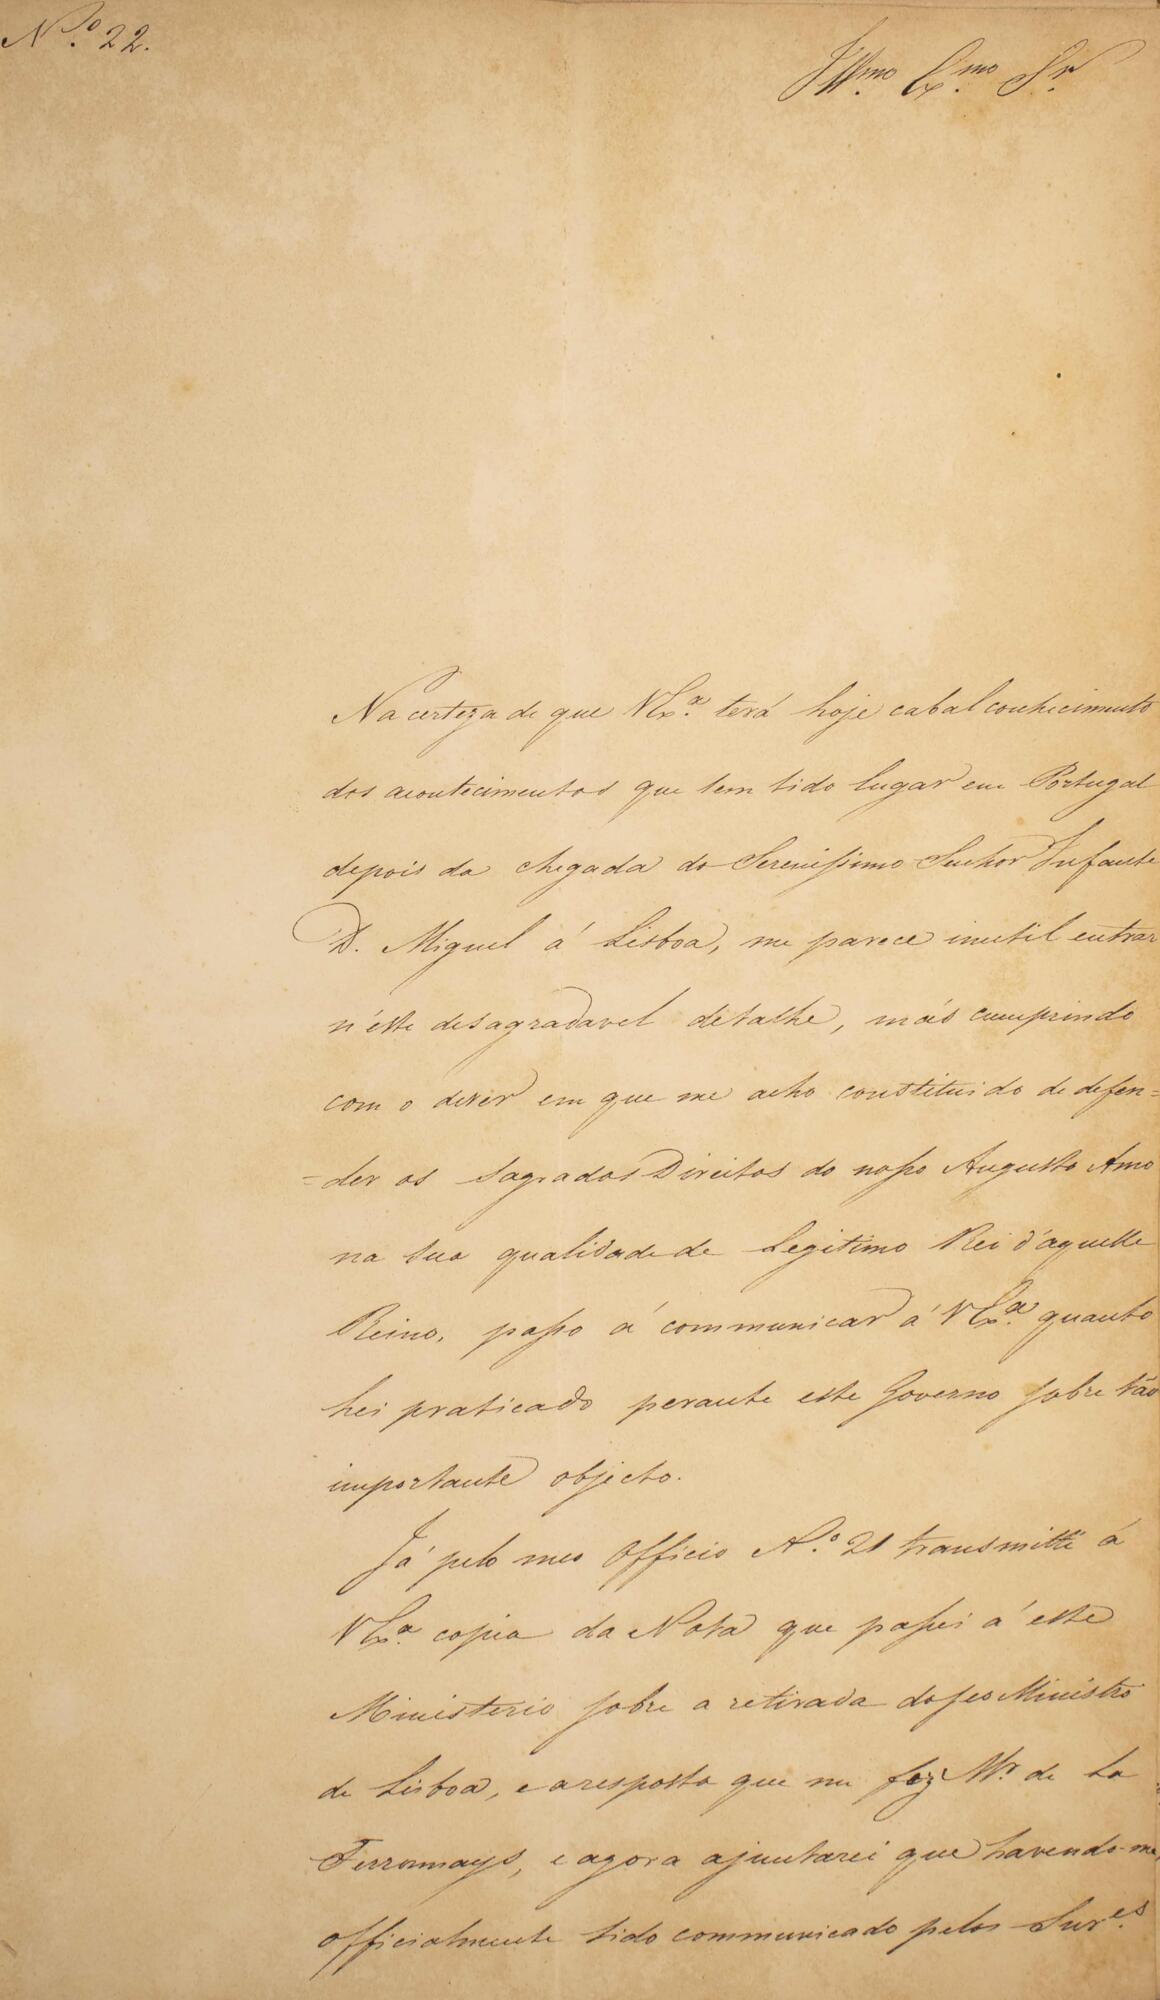 N.º 22.
Illmo. Exmo. Sr.
Na certeza de que VExª. terá hoje cabal conhecimento
dos acontecimentos que tem tido lugar em Portugal
depois da chegada do Serenissimo Senhor Infante
D. Miguel á Lisboa, me parece inutil entrar
n'éste desagradavel detalhe, más cumprindo
com o dever em que me acho constituido de defen=
=der os sagrados Direitos do nosso Augusto Amo
na sua qualidade de Legitimo Rei d'aquelle
Reino, passo á communicar á VExª. quanto
hei praticado perante este Governo sobre tão
importante objecto.
Já pelo meo Officio N.º 21 transmitti á
VExª. copia da Nota que passei á este
Ministerio sobre a retirada do seo Ministro
de Lisboa, e a resposta que me fez Mr. de La
Ferronnays, e agora ajuntarei que havendo-me,
officialmente sido communicado pelos Snres.